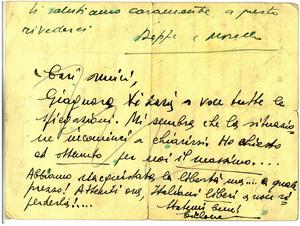 ti salutiamo caramente a presto
rivederci
Beppe e
Cari amici,
Giaguaro vi darà a voce tutte le
spiegazioni. Mi sembra che la situazio
ne incominci a chiarirsi. Ho chiesto
ed ottenuto per noi il massimo....
Abbiamo riacquistata la libertà ma.... a quale
prezzo! Attenti ora, Italiani liberi a non ri
perderla!....
State bene!